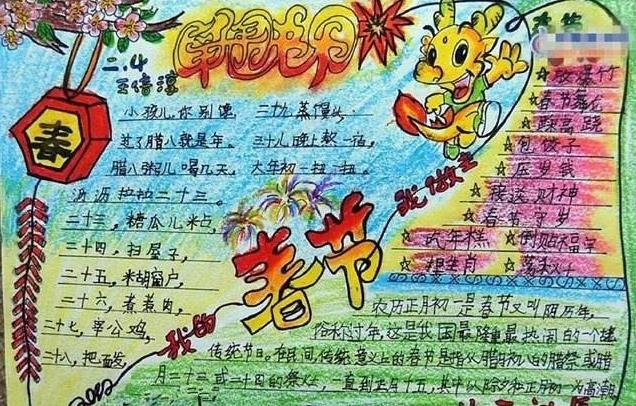 二.4
春
小孩儿你别馋
过了腊八就是年。
腊八粥儿喝几天,
沥沥拉拉二十三。
二十三,糖瓜儿粘
二十四,扫屋子,
二十五,米胡窗户
二十六,煮煮肉,
二十七,宰公鸡,
二十八,把面发
二十九蒸馒头
三十儿晚上熬一宿,
大年初一扭一扭。
我的
春节
我做主
☆放爆竹
☆春节舞龙
☆踩高跷
☆包饺子
☆压岁钱
☆接送财神
☆春节守岁
☆吃年糕 ☆倒贴福字
☆
农历正月初一是春节又叫阴历年,
俗称过年,这是我国最隆重最热闹的一个
传统节日。在民间,传统意义上的春节是指从腊月初八的腊祭或腊
月二十三或二十四的祭灶,一直到正月十五,其中以除夕和正月初一为高潮
2012